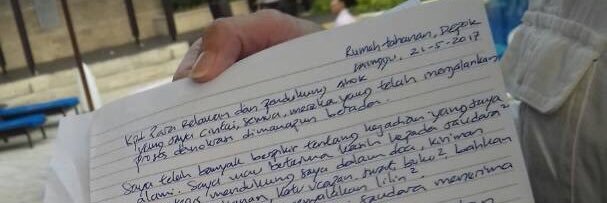 Rumah tahanan, Depok
minggu, 21-5-2017
Kpd Para Relawan dan pendukung Ahok
yang saya cintai, semua mereka yang telah menjalankan
proses demokrasi dimanapun berada.
Saya telah banyak berpikir tentang kejadian yang saya
alami. Saya mau berterima kasih kepada saudara2
mendukung saya dalam doa, kiriman
kartu ucapan, surat, buku2, bahkan
lilin2.
saudara menerima